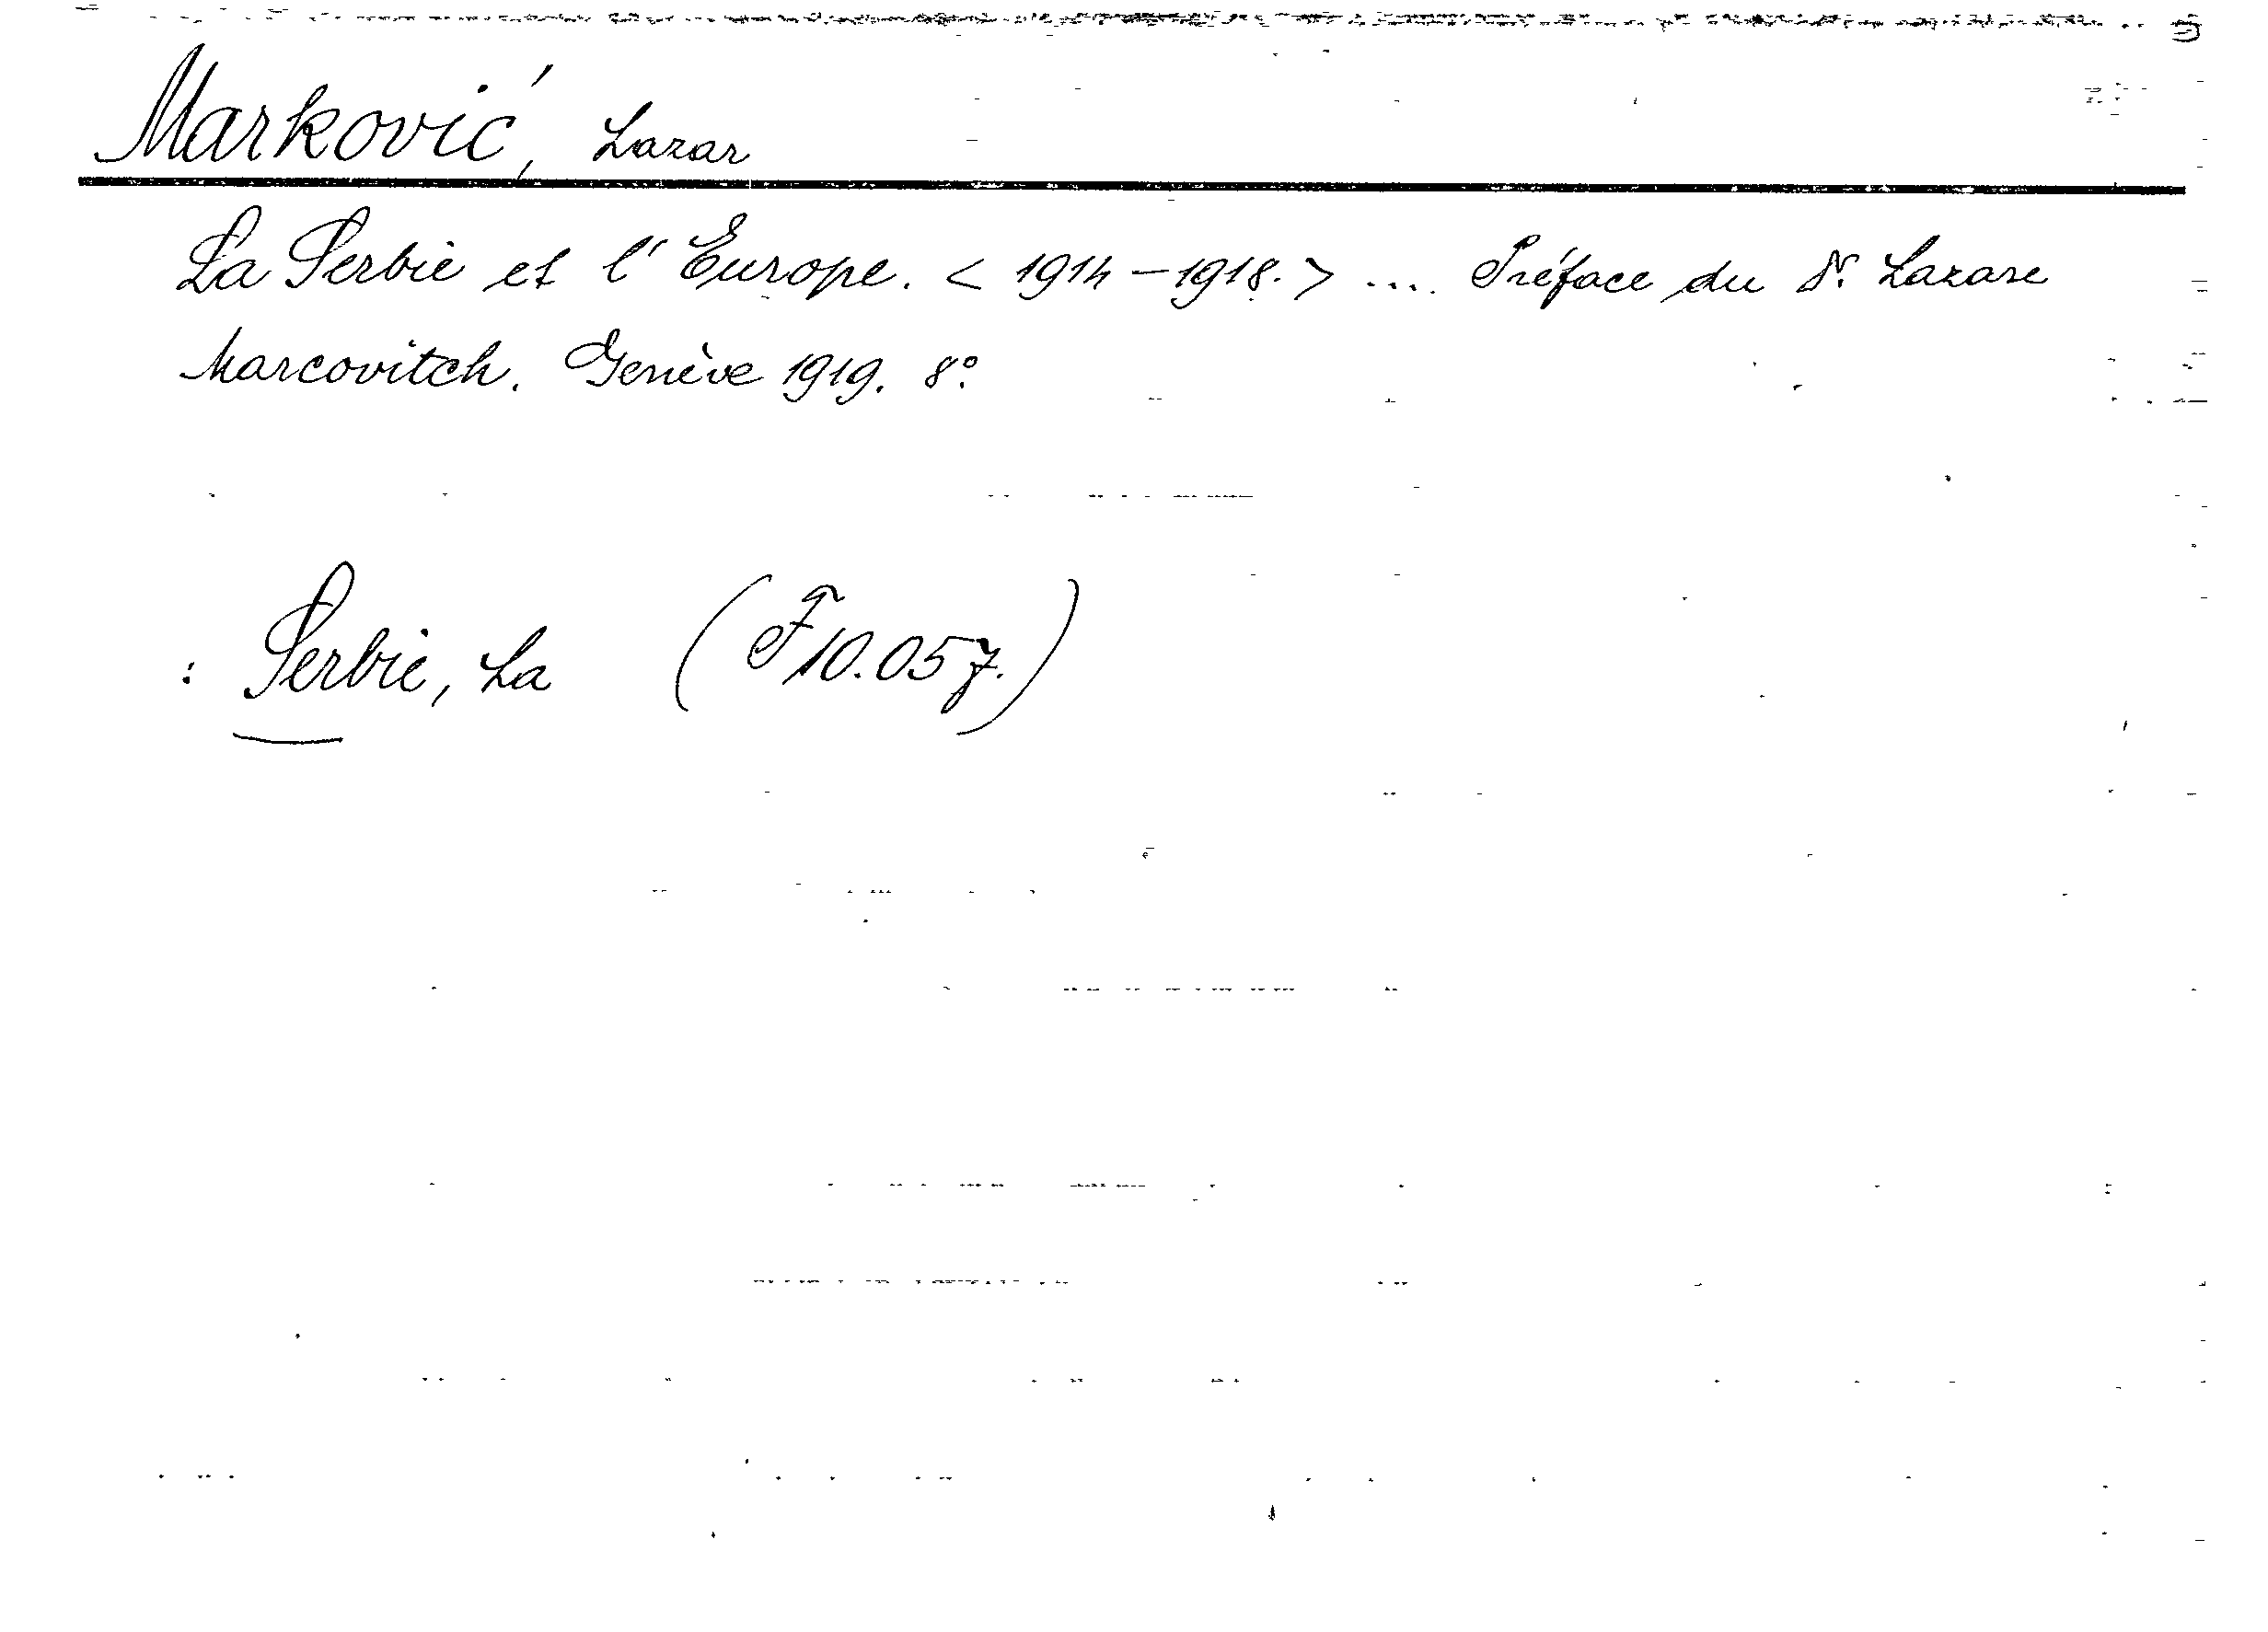 Marković, Lazar
La Serbie et l'Europe. < 1914 – 1918. > .... Préface du Dr. Lazare
Marcovitch. Genève 1919. 8°.
: Serbie, La (F 10.057.)